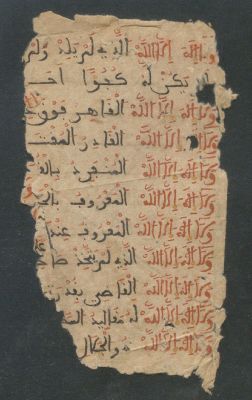 ولا اله الا الله الذي لم يلد ولم
يكن له كفوا احـ
ولا اله الا الله القاهر فوق
ولا اله الا الله القادر المقتـ
ولا اله الا الله المنفرد
ولا اله الا الله المعروف
ولا اله الا الله المعروف عند
ولا اله الا الله الذي لم يتخذ
ولا اله الا الله
ولا اله الا الله له مقاليد
ولا اله الا الله